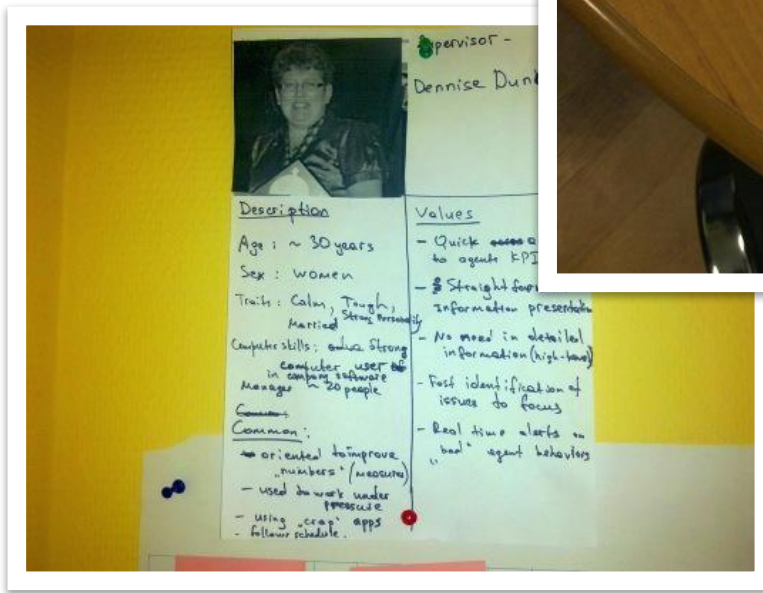 pervisor -
Dennise Dun
Description
Age : ~ 30 years
Sex : women
Traits : Calm, Tough,
Married Strong Personality
Computer skills : Strong
computer user
in company software
Manager ~ 20 people
Common :
- oriented to improve
"numbers" (measures)
- used to work under
pressure
- using "crap" apps
- follows schedule.
Values
- Quick
to agents KPI
- Straight for
information presentation
- No need in detailed
information (high-level)
- Fast identification of
issues to focus
- Real time alerts on
"bad" agent behaviors